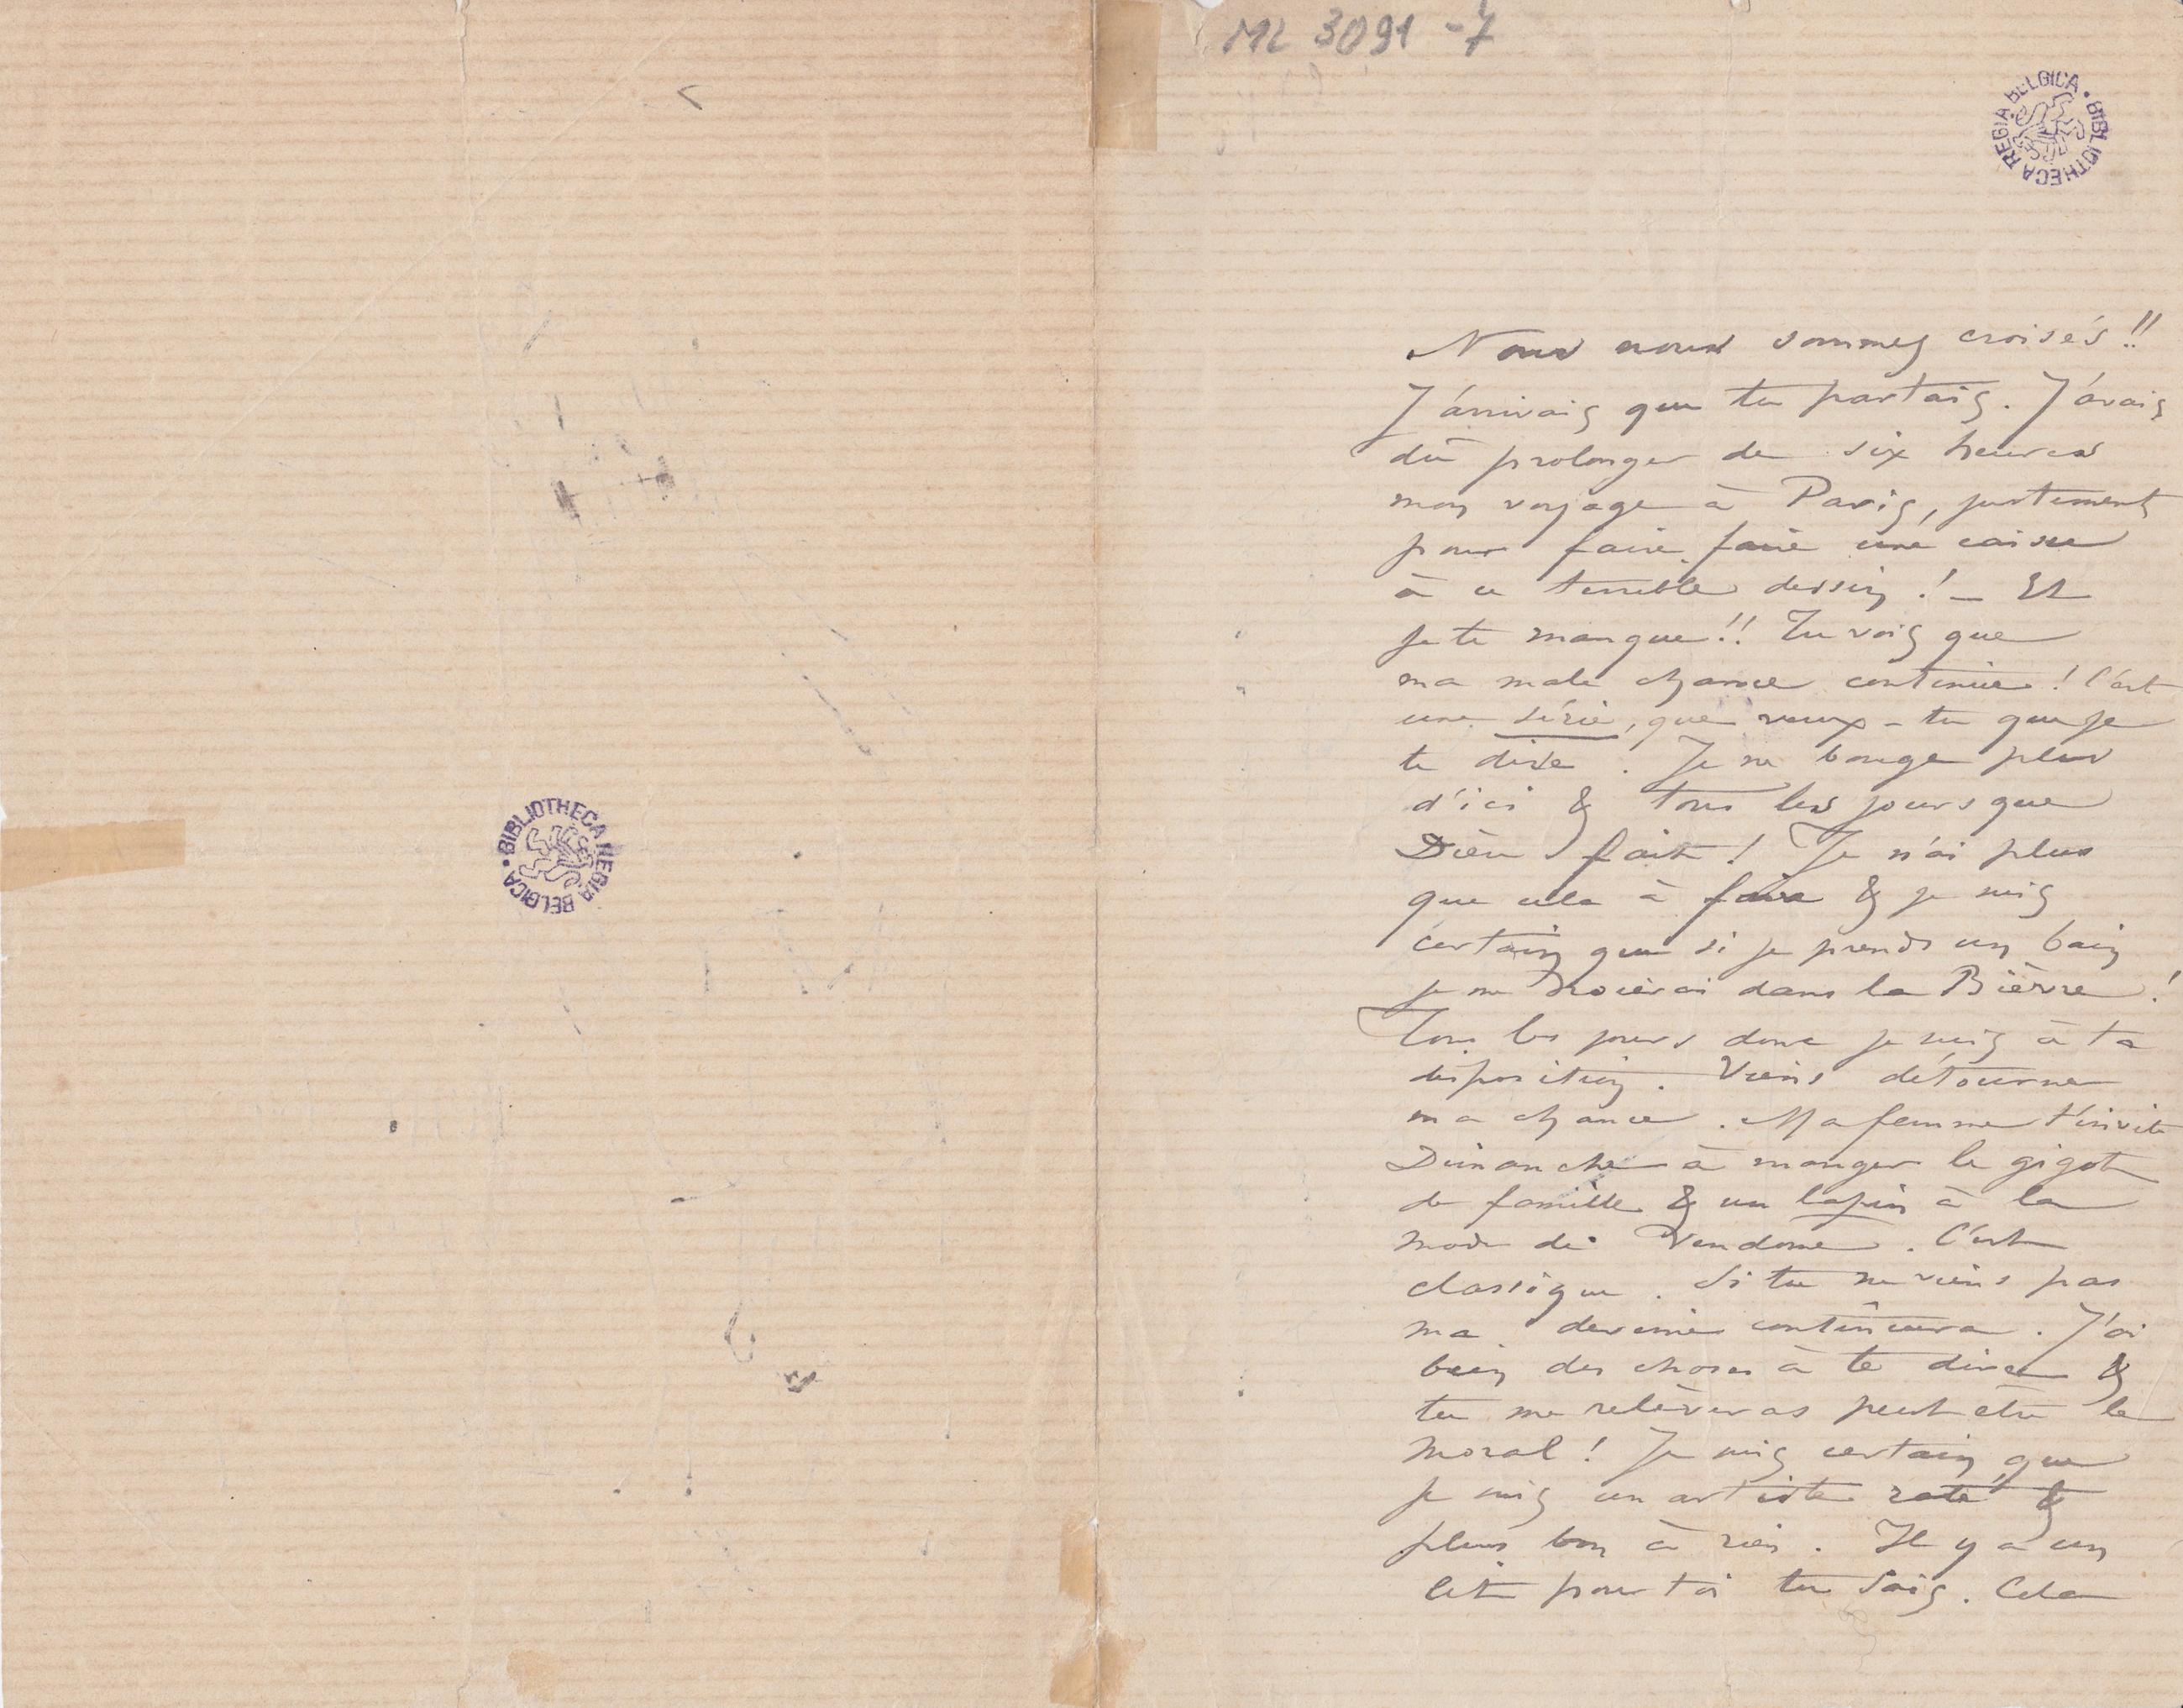 ML 3091 - 7
BIBLIOTHECA REGIA BELGICA
BIBLIOTHECA REGIA BELGICA
Nous nous sommes croisés !!
J'arrivais que tu partais. J'avais
dû prolonger de six heures
mon voyage à Paris, justement
pour faire faire une caisse
à ce terrible dessin ! _ Et
je te manque !! Tu vois que
ma male chance continue ! C'est
une série, que veux-tu que je
te dise. Je ne bouge plus
d'ici & tous les jours que
Dieu fait ! Je n'ai plus
que cela à faire & je suis
certain que si je prends un bain
je me noierai dans la Bièvre !
Tous les jours donc je suis à ta
disposition. Viens détourner
ma chance. Ma femme t'invite
Dimanche à manger le gigot
de famille & un lapin à la
mode de Vendome. C'est
classique. Si tu ne viens pas
ma deveine continuera. J'ai
bien des choses à te dire &
tu me relèveras peut etre le
moral ! Je suis certain que
je suis un artiste raté &
plus bon à rien. Il y a un
lit pour toi tu sais. Cela